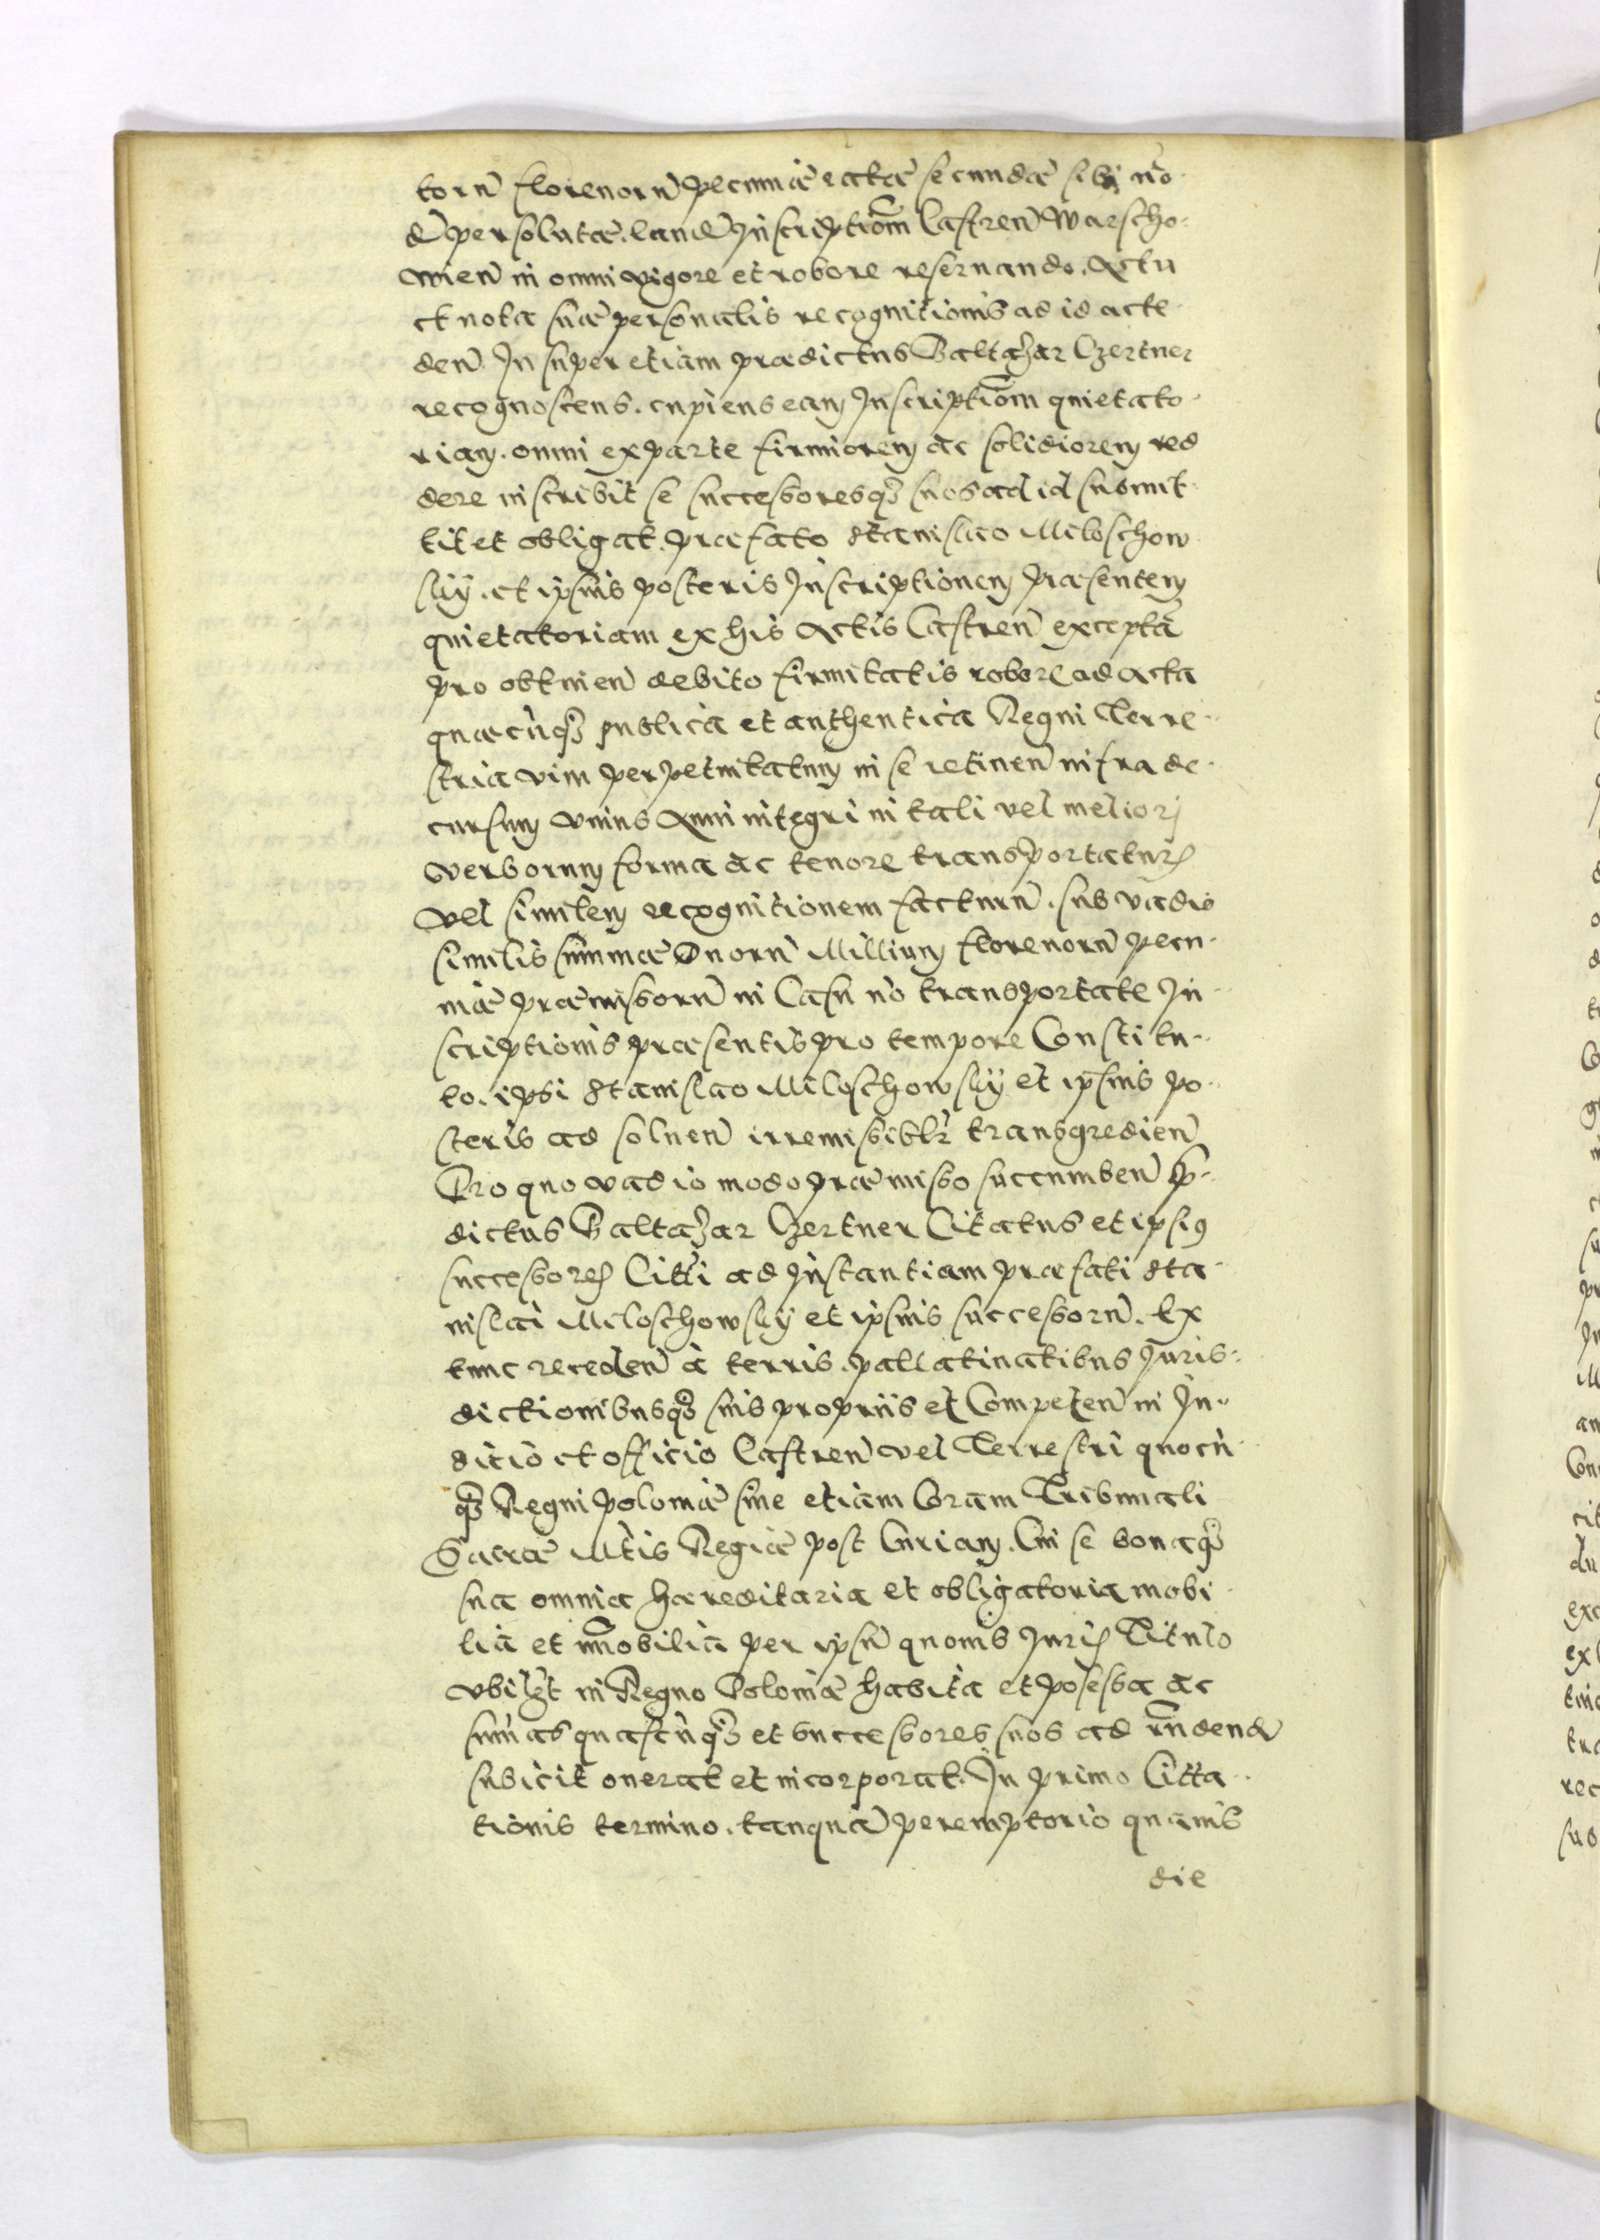 torū florenorū pecuniæ ratæ secundæ sibi nō
d̄ persolutæ. eand̄ Inscriptiōm Castren̄ Warscho
wien̄ in omni vigore et robore reseruando. Actu
et nota suæ personalis recognitionis ad id acte
den̄ Insuper etiam prædictus Baltazar Czertner
recognoscens. cupiens eam Inscriptiōm quietato
riam. omni ex parte firmiorem ac solidiorem red
dere inscribit se successoresq₃ suos ad id submit
tit et obligat. præfato Stanislao Miloschow
skÿ. et ipsius posteris Inscriptionem præsentem
quietatoriam ex his Actis Castren̄ exceptā
pro obtinen̄ debito firmitatis robore ad Acta
quæcūq₃ publica et authentica Regni Terre
stria vim perpetuitatum in se retinen̄ infra de
cursum vnius Anni integri in tali vel meliori
verborum forma ac tenore transportatur͛
vel similem recognitionem facturū. sub vadio
similis summæ Duorū Millium florenorū pecu
niæ præmissorū in Casu nō transportate In
scriptionis præsentis pro tempore Constitu
to. ipsi Stanislao Miloschowskÿ et ipsius po
steris ad soluen̄ irremissiblr̄ transgredien̄
Pro quo vadio modo præmisso succumben̄ p̄
dictus Baltazar Czertner Citatus et ipsi⁹
successores Citti ad Instantiam præfati Sta
nislai Miloschowskÿ et ipsius successorū. Ex
tunc receden̄ à terris. pallatinatibus Iuris
dictionibusq₃ suis propriis et Competen̄ in Iu
dicio et officio Castren̄ vel Terrestri quocū
q₃ Regni poloniæ siue etiam Coram Tribunali
Sacræ Mtis Regiæ post Curiam. Cui se bonaq₃
sua omnia hæreditaria et obligatoria mobi
lia et im̄obilia per ipsū quouis Iuris Titulo
vbilzt in Regno Poloniæ habita et possessa ac
sum̄as quascūq₃ et successores suos ad rn̄dend̄
subicit onerat et incorporat. In primo Citta
tionis termino. tanquā peremptorio quamis
die